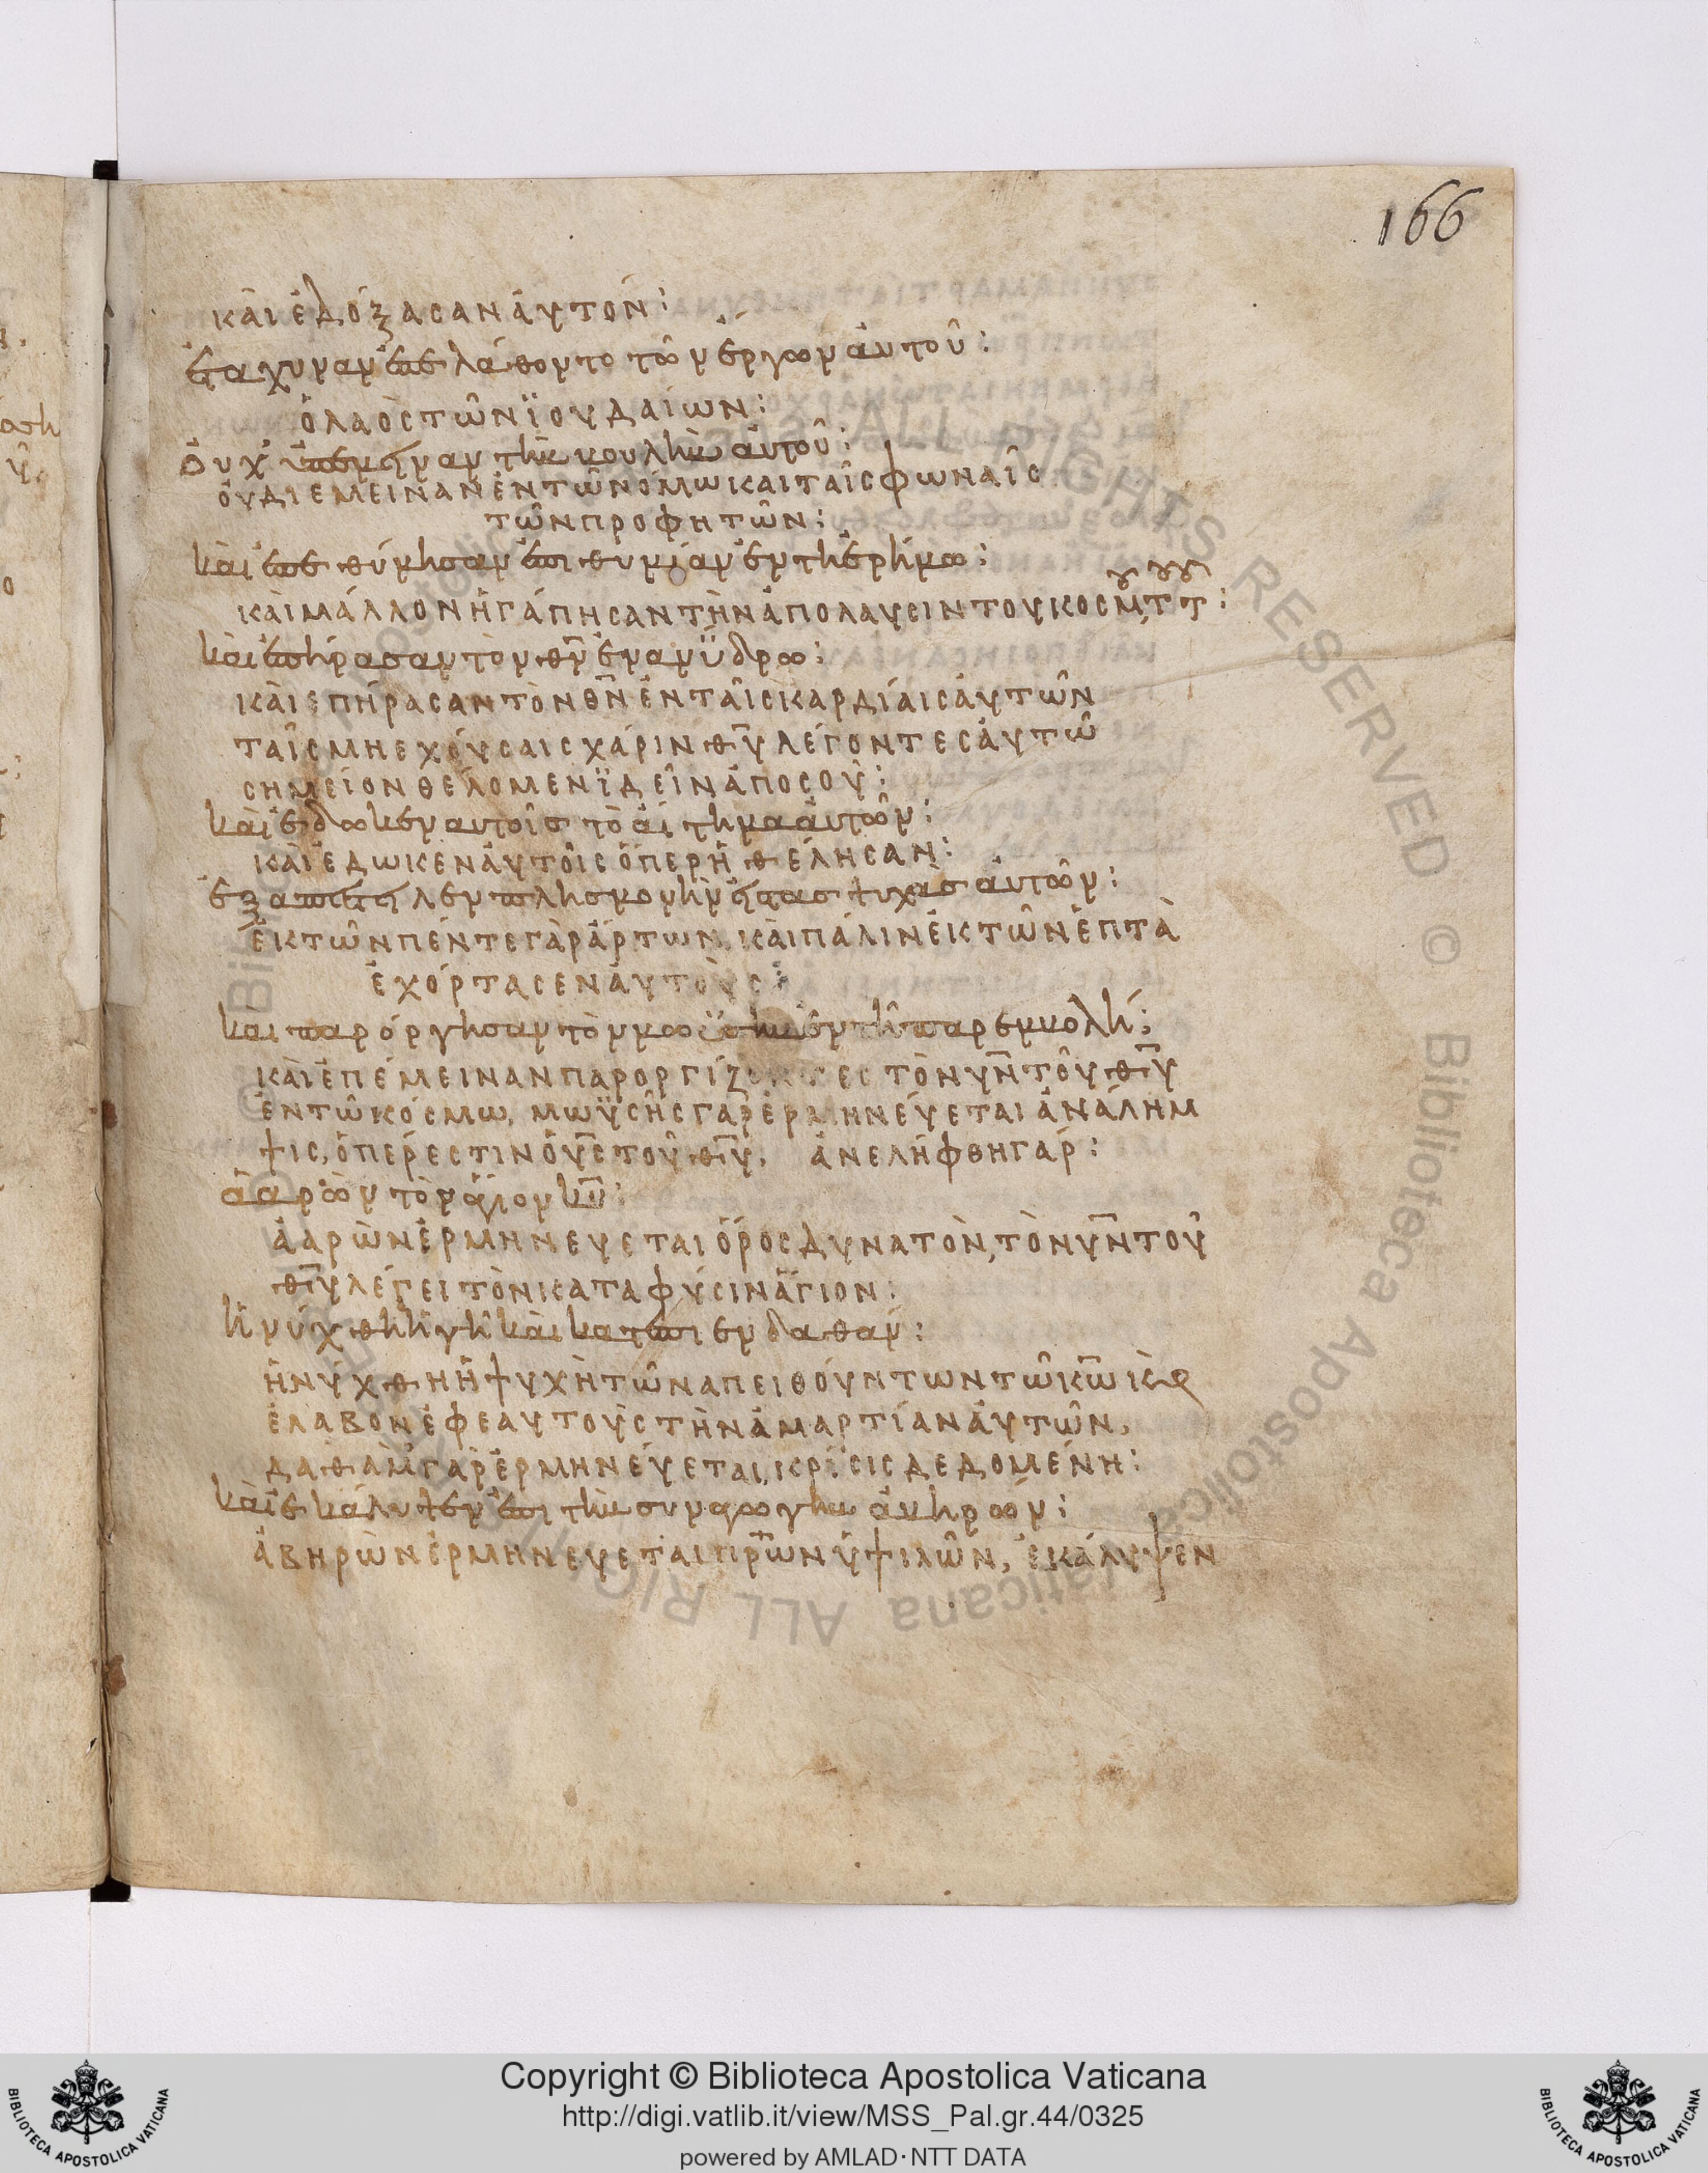 166
καὶ ἐδόξασαν ἀυτόν:
ἐταχυναν ἐπελάθοντο τῶν ἔργων ἀυτοῦ:
ὁ λαὸς τῶν ϊουδαίων:
ὀυχ ὑπέμειναν τὴν βουλὴν ἀυτοῦ:
ὀυ διεμειναν ἐν τῶ νόμω και ταῖς φωναῖς
τῶν προφητῶν:
καὶ ἐπεθύμησαν ἐπιθυμίαν ἐν τῆ ἐρήμω:
καὶ μάλλον ἠγάπησαν τὴν ἀπολαυσιν του κοσμ, τ τ:
καὶ ἐπήρασαν τὸν θν ἐν ανύδρω:
κὰι επήρασαν τὸν θν ἐν ταῖς καρδίαις ἀυτῶν
ταῖς μη εχόυσαις χάριν θυ λέγοντες ἀυτῶ
σημεῖον θέλομεν ϊδεῖν ἀπο σοῦ:
κὰι ἔδωκεν αυτοῖς τὸ ἀίτημα ἀυτῶν:
κὰι ἔδωκεν ἀυτοῖς ὅπερ ἠθέλησαν:
ἐξαπέστειλεν πλησμονὴν εἰς τας ψυχὰς ἀυτῶν:
ἐκ τῶν πέντε γὰρ ἄρτων, κὰι πάλιν ἐκ τῶν ἑπτὰ
ἐχόρτασεν ἀυτοὺς:
κὰι παρόργησαν τὸν μωϋσὴν ἐν τῆ παρεμβολῆ:
κὰι ἐπέμειναν παροργίζοντες τὸν υν τοῦ θυ
ἐν τῶ κόσμω, μωϋσῆς γὰρ ἑρμηνέυεται ἀνάλημ
ψις, ὅπερ εστιν ὁ υς τοῦ θυ, ἀνελήφθη γάρ:
ἀαρὼν τὸν ἅγιον κυ:
ἀαρὼν ἑρμηνευεται ὄρος δυνατὸν, τὸν υν τοῦ
θυ λέγει τὸν κατα φύσιν ἅγιον:
ἠνύχθη ἡ γῆ κὰι κατέπιεν δαθάν:
ἠνύχθη ἡ ψυχὴ τῶν απειθόυντων τῶ κω ιυ ϗ
ἔλαβον ἐφ εαυτοὺς τὴν ἁμαρτίαν ἀυτῶν,
δαθὰμ γὰρ ἑρμηνέυεται, κρίσις δεδομένη:
κὰι ἐκάλυψεν ἐπι τὴν συναγωγὴν ἀβηρών:
ἀβηρὼν ἑρμηνευεται πρων ὑψιλῶν, ἐκάλυψεν
Copyright © Biblioteca Apostolica Vaticana
http://digi.vatlib.it/view/MSS_Pal.gr.44/0325
powered by AMLAD·NTT DATA
BIBLIOTECA APOSTOLICA VATICANA
BIBLIOTECA APOSTOLICA VATICANA